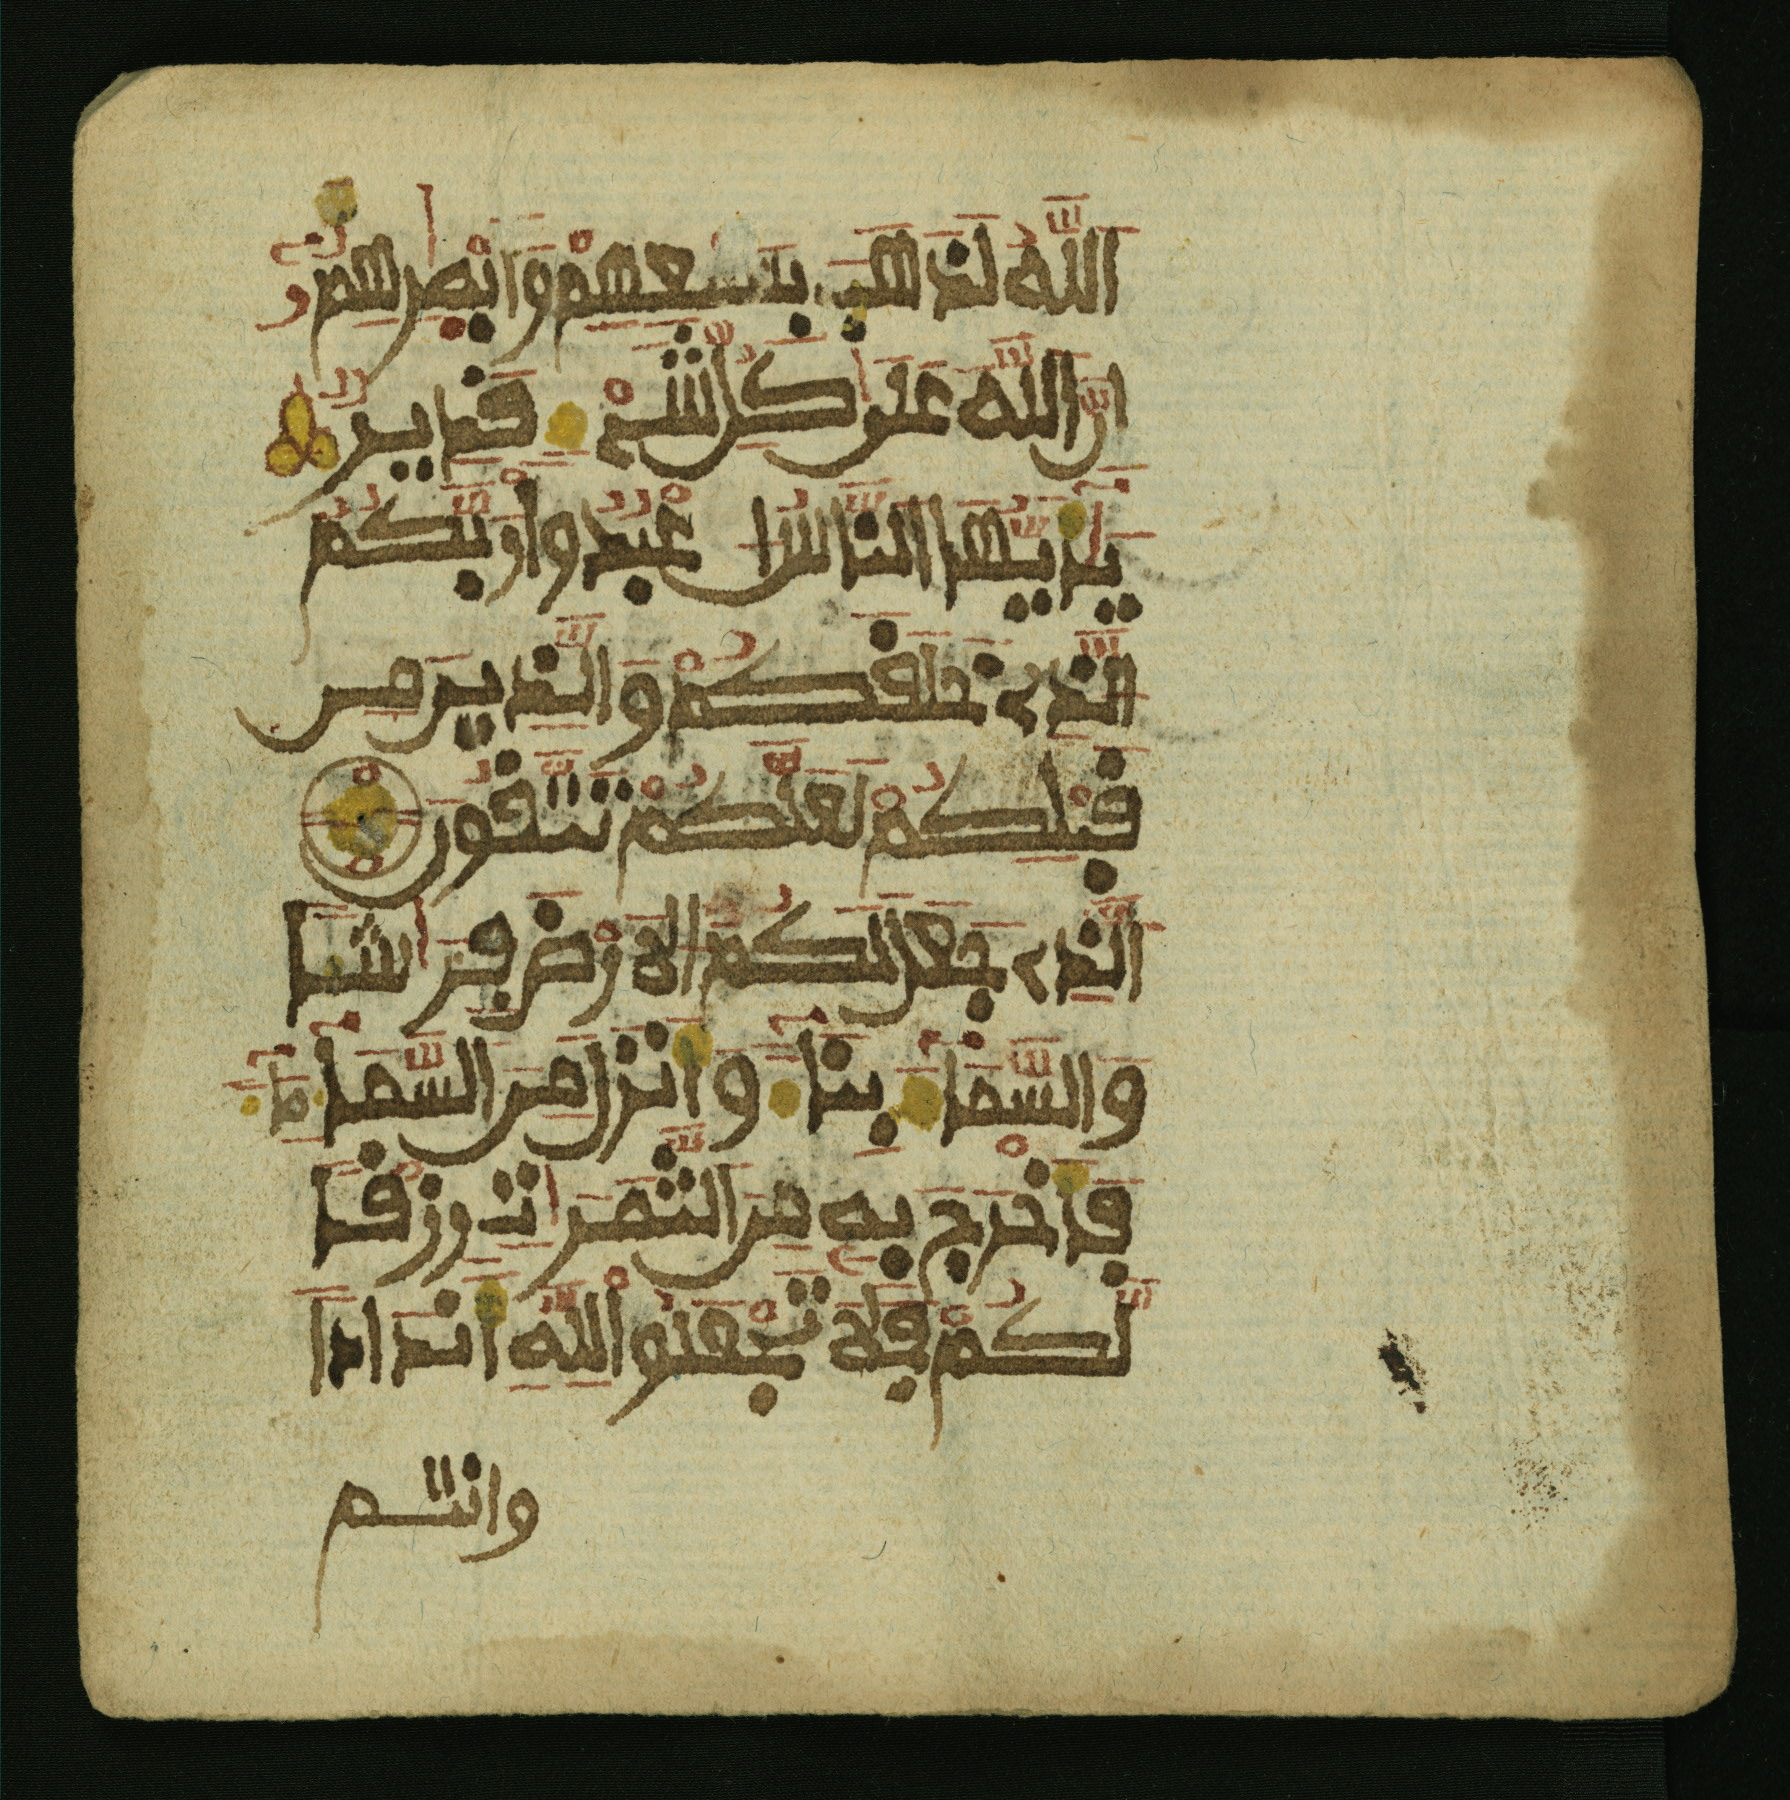 اللَّهُ لَذَهَبَ بِسَمْعِهِمْ وَأَبْصَٰرِهِمُۥٓ
إِنَّ اللَّهَ عَلَىٰ كُلِّ شَيْءٍ قَدِيرٌ
يَٰٓأَيُّهَا النَّاسُ اعْبُدُوا رَبَّكُمُ
الَّذِے خَلَقَكُمْ وَالَّذِينَ مِن
قَبْلِكُمْ لَعَلَّكُمْ تَتَّقُونَ
الَّذِے جَعَلَ لَكُمُ الْأَرْضَ فِرَٰشًا
وَالسَّمَآءَ بِنَآءً وَأَنزَلَ مِنَ السَّمَآءِ مَآءً
فَأَخْرَجَ بِهِ مِنَ الثَّمَرَٰتِ رِزْقًا
لَّكُمْ فَلَا تَجْعَلُوا لِلَّهِ أَندَادًا
وانتم